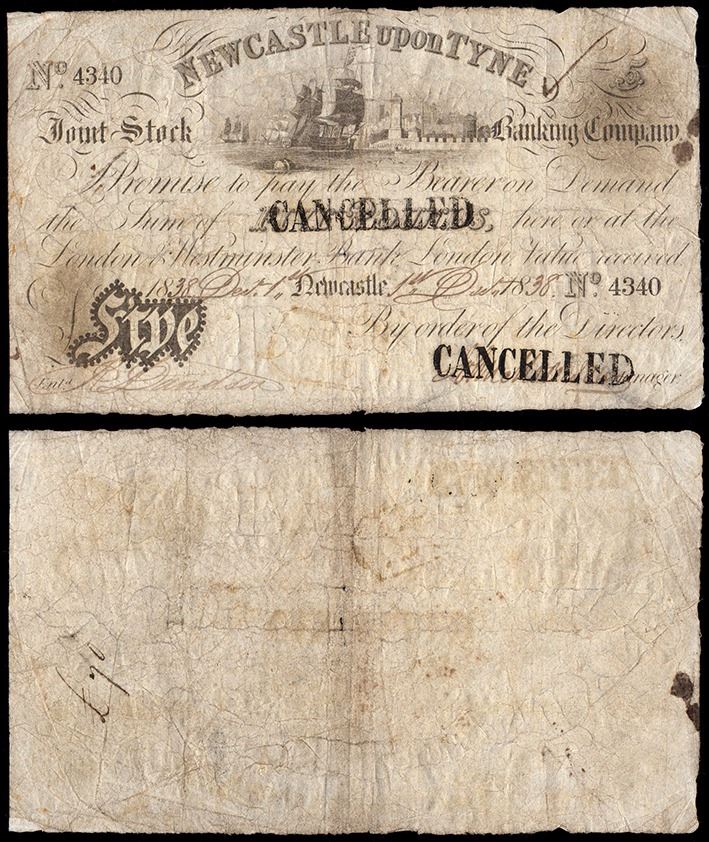 NEWCASTLE upon TYNE
No 4340
5
Joint-Stock Banking Company
I Promise to pay the Bearer on Demand
the Sum of CANCELLED here or at the
London & Westminster Bank London Value received
1838 Decr. 1st Newcastle 1st Decr. 1838 No 4340
£Five
By order of the Directors,
CANCELLED
Entd Manager